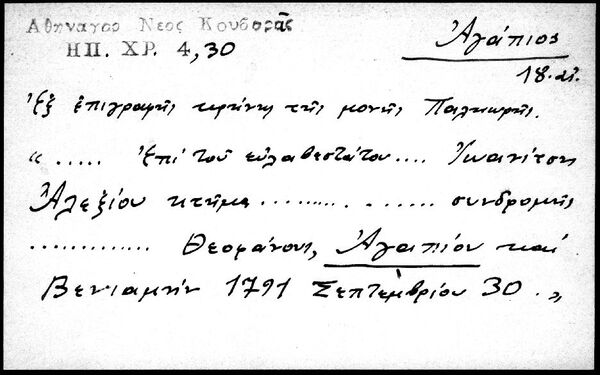 Αθηναγορ Νεος Κουβαρᾶς
ΗΠ. ΧΡ. 4,30
Ἀγάπιος
18. αἰ.
Ἐξ ἐπιγραφῆς κρήνης τῆς μονῆς Παλιουρῆς.
“ ..... ἐπὶ τοῦ εὐλαβεστάτου .... Ἰωαννίτση
Ἀλεξίου κτῆμα .................. συνδρομῆς
............ Θεοφάνους, Ἀγαπίου καὶ
Βενιαμὴν 1791 Σεπτεμβρίου 30 . „